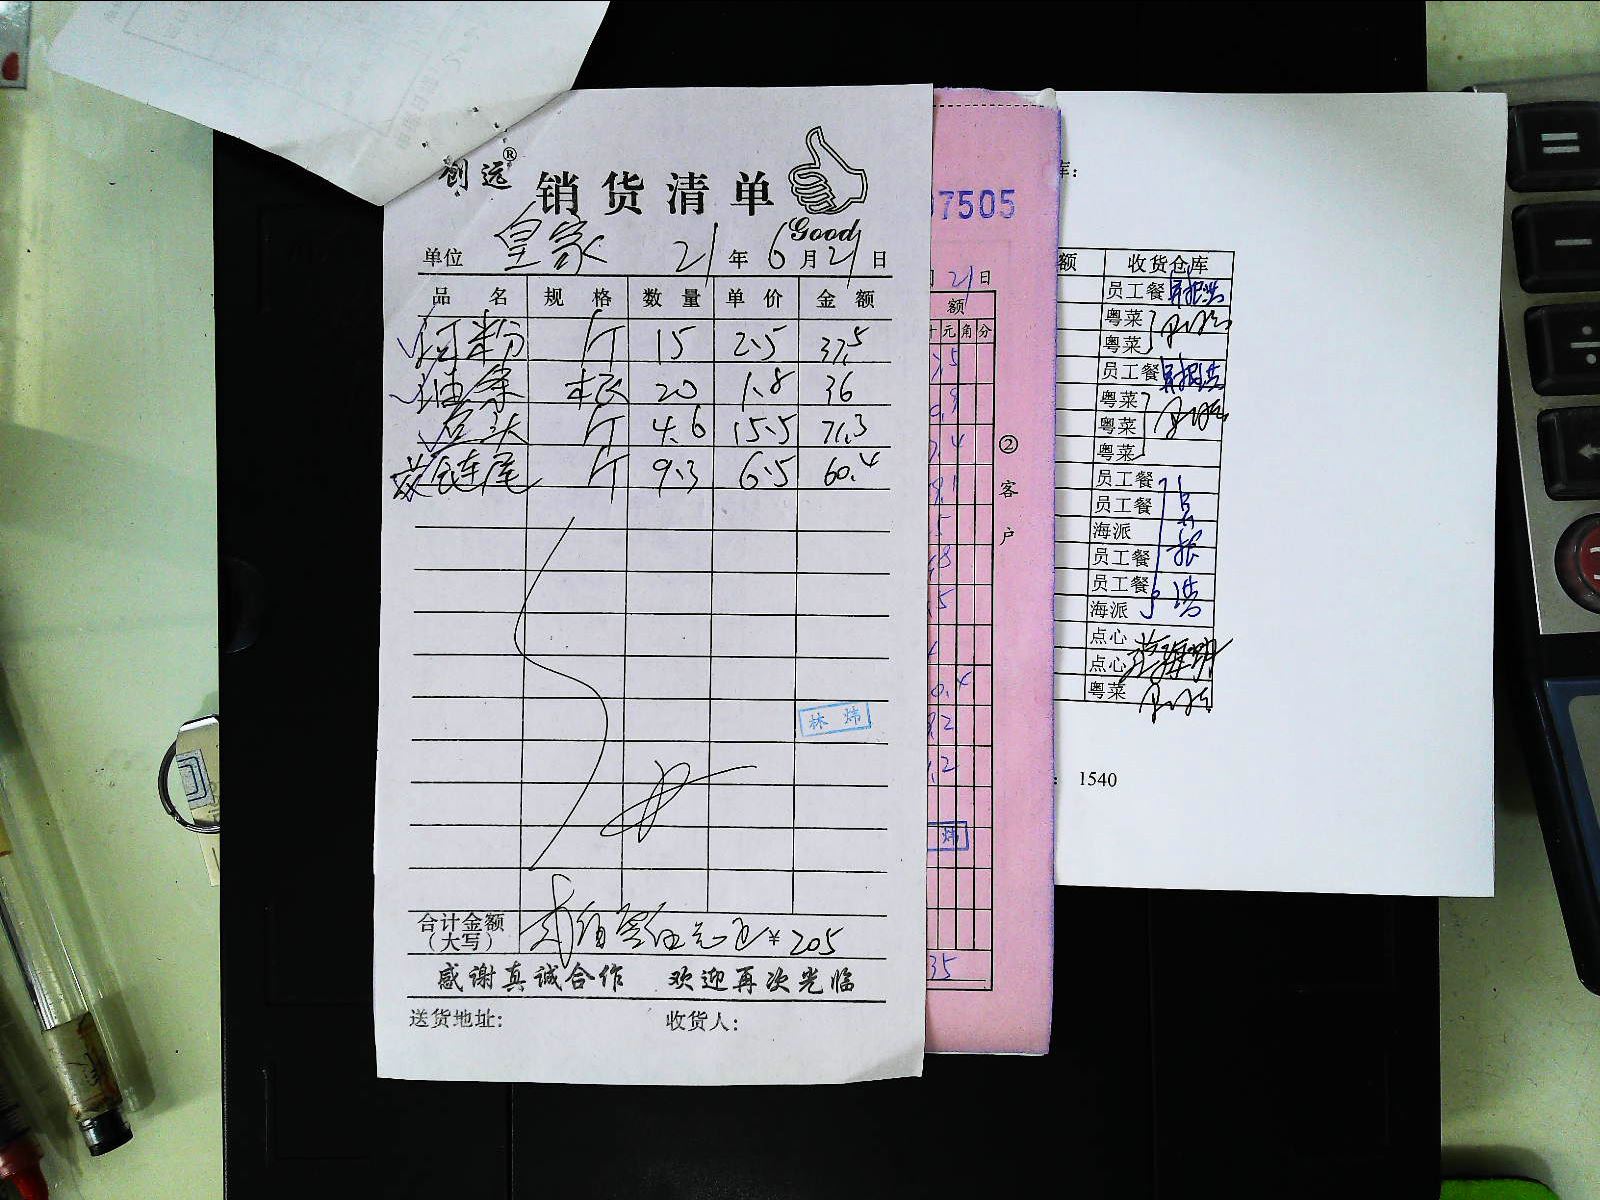 创远®
销货清单
Good
单位 皇家 21年6月21日
品名 规格 数量 单价 金额
河粉 斤 15 2.5 37.5
油条 根 20 1.8 36
斤 4.6 15.5 71.3
链尾 斤 9.3 6.5 60.4
林炜
合计金额
（大写） ¥205
感谢真诚合作 欢迎再次光临
送货地址：
收货人：
07505
月21日
额
十元角分
②客户
35
库：
额 收货仓库
员工餐
粤菜
粤菜
员工餐
粤菜
粤菜
粤菜
员工餐
员工餐
海派
员工餐
员工餐
海派
点心
点心
粤菜
：1540